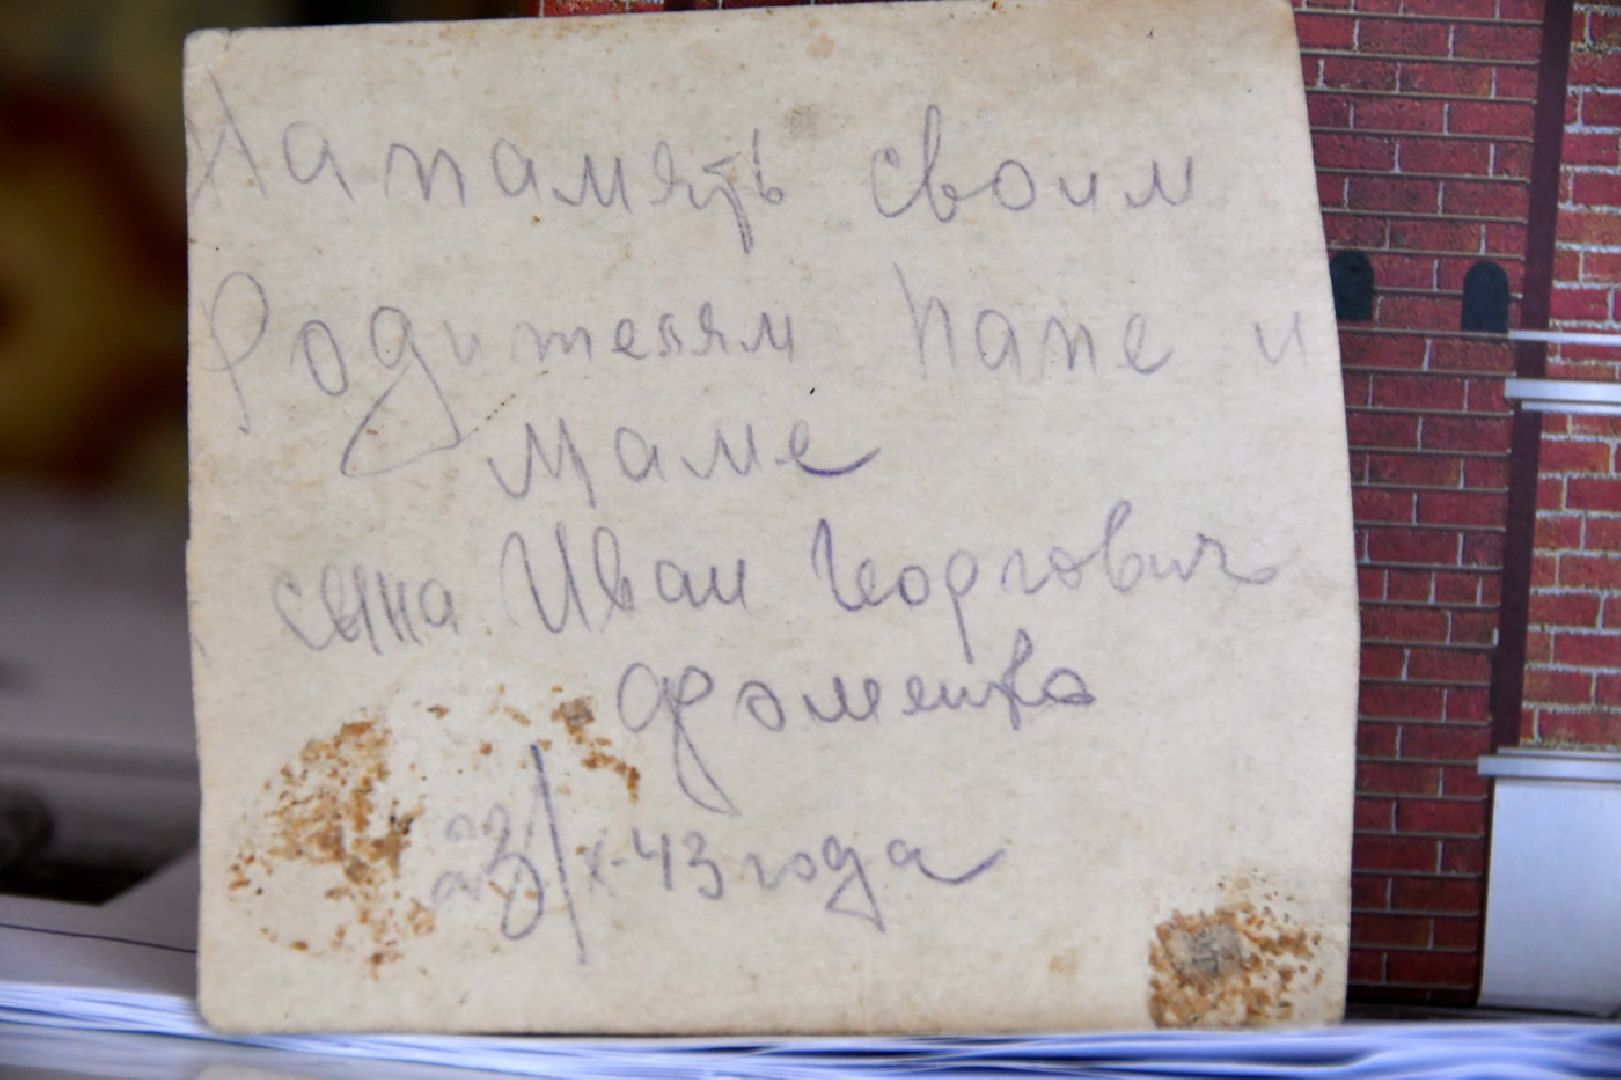 На память своим
Родителям папе и
маме
сына Иван Георгович
фоменко
23/x-43 года